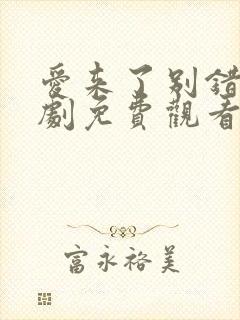 愛來了別錯
劇免費觀看
富永裕美